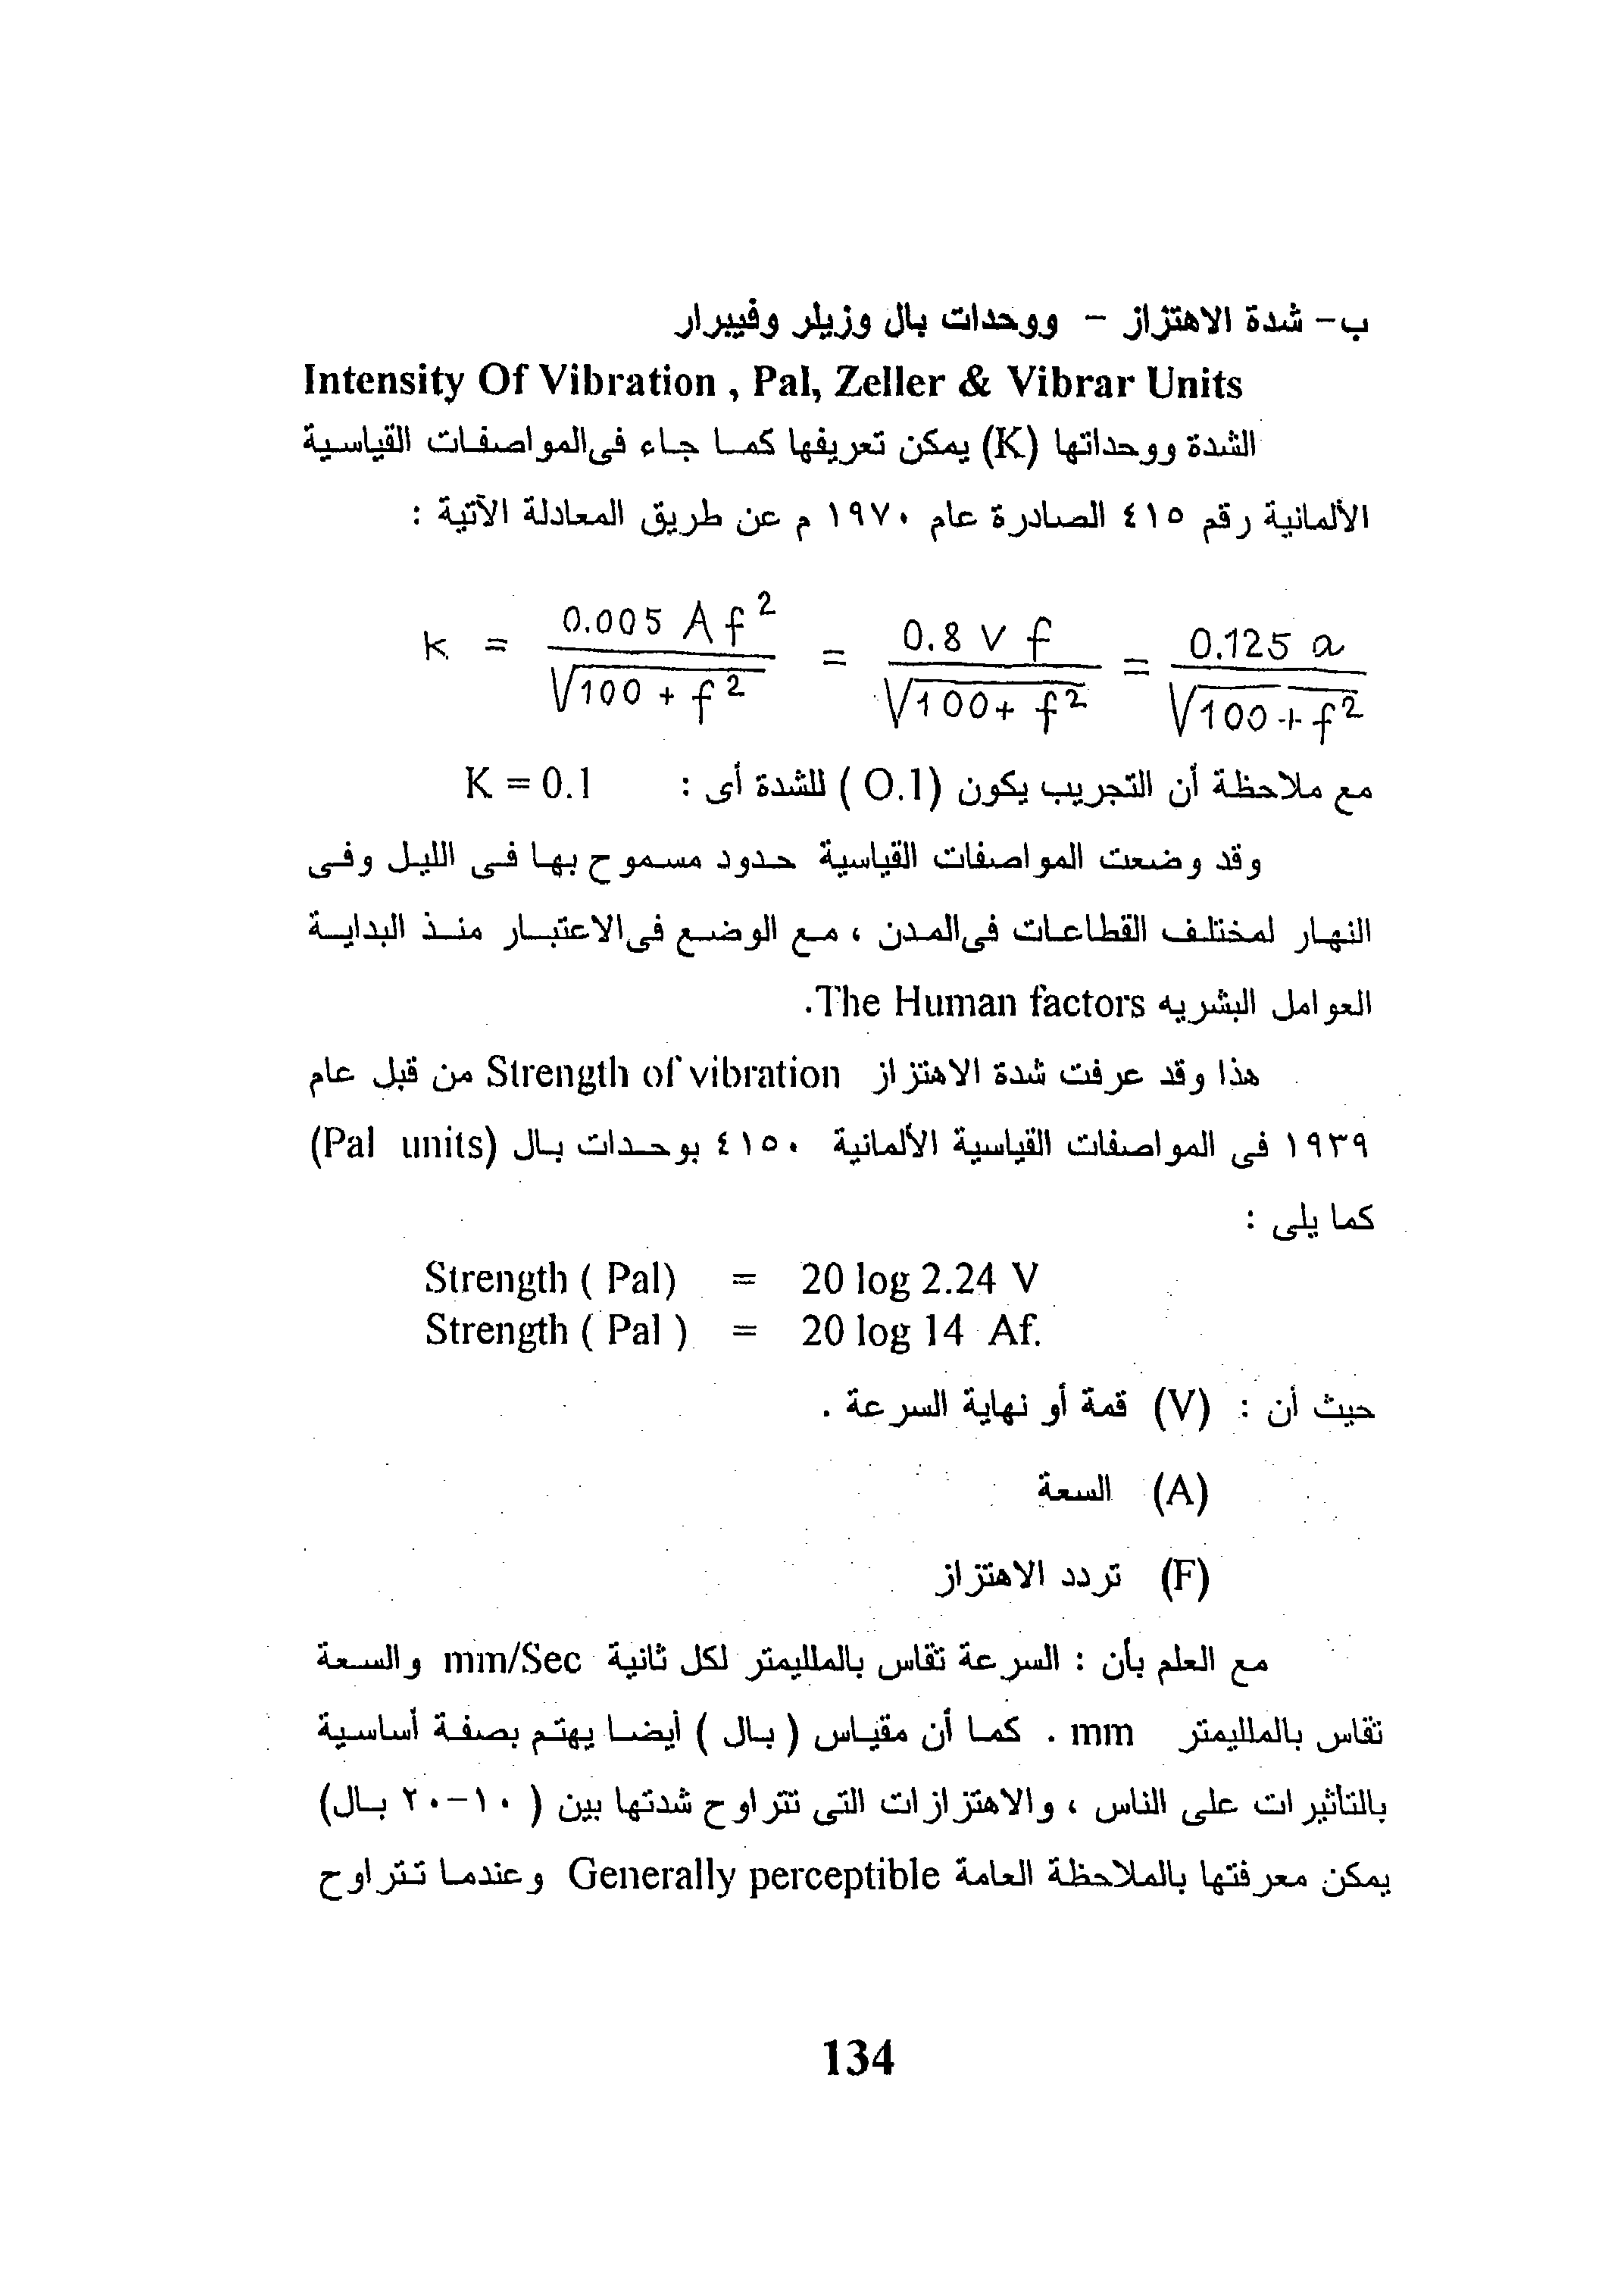 ب- شدة الاهتزاز - ووحدات بال وزيلر وفيبرار
Intensity Of Vibration , Pal, Zeller & Vibrar Units
الشدة ووحداتها (K) يمكن تعريفها كما جاء فى المواصفات القياسية
الألمانية رقم ٤١٥ الصادرة عام ١٩٧٠ م عن طريق المعادلة الآتية :
k = 0.005 A f² / √100 + f² = 0.8 v f / √100 + f² = 0.125 a / √100 + f²
مع ملاحظة أن التجريب يكون (O.1 ) للشدة أى : K = 0.1
وقد وضعت المواصفات القياسية حدود مسموح بها فى الليل وفى
النهار لمختلف القطاعات فى المدن ، مع الوضع فى الاعتبار منذ البداية
العوامل البشريه The Human factors.
هذا وقد عرفت شدة الاهتزاز Strength of vibration من قبل عام
١٩٣٩ فى المواصفات القياسية الألمانية ٤١٥٠ بوحدات بال (Pal units)
كما يلى :
Strength ( Pal) = 20 log 2.24 V
Strength ( Pal ) = 20 log 14 Af.
حيث أن : (V) قمة أو نهاية السرعة .
(A) السعة
(F) تردد الاهتزاز
مع العلم بأن : السرعة تقاس بالملليمتر لكل ثانية mm/Sec والسعة
تقاس بالملليمتر mm . كما أن مقياس ( بال ) أيضا يهتم بصفة أساسية
بالتأثيرات على الناس ، والاهتزازات التى تتراوح شدتها بين ( ١٠-٢٠ بال)
يمكن معرفتها بالملاحظة العامة Generally perceptible وعندما تتراوح
134